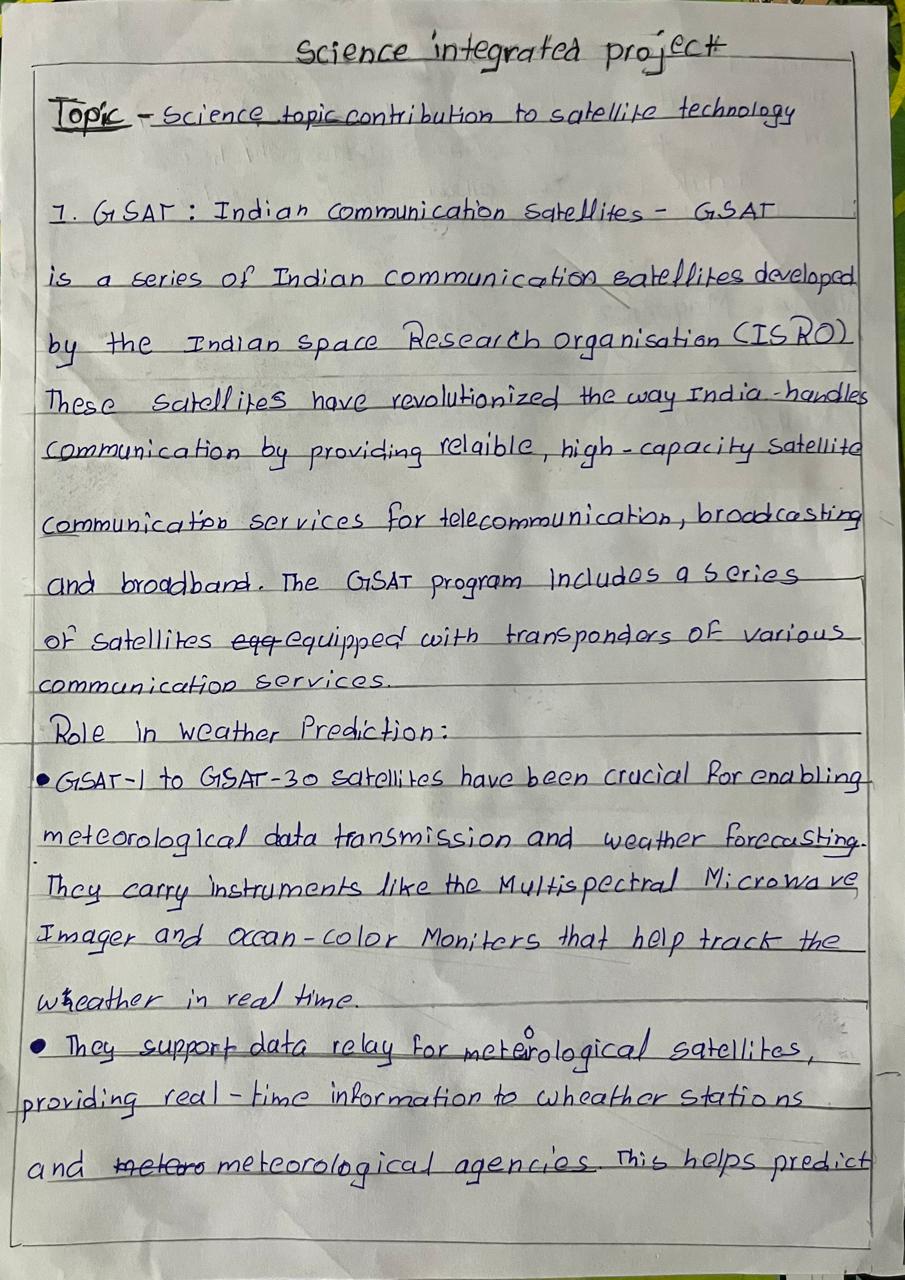 Science integrated project
Topic - Science topic contribution to satellite technology
1. GSAT : Indian Communication Satellites - GSAT
is a series of Indian communication satellites developed
by the Indian Space Research Organisation (ISRO)
These satellites have revolutionized the way India-handles
communication by providing relaible, high-capacity satellite
communication services for telecommunication, broadcasting
and broadband. The GSAT program includes a series
of satellites eqq equipped with transponders of various
communication services.
Role in weather Prediction:
• GSAT-1 to GSAT-30 satellites have been crucial for enabling
meteorological data transmission and weather forecasting.
They carry instruments like the Multispectral Microwave
Imager and Occan-color Moniters that help track the
wheather in real time.
• They support data relay for meterological satellites,
providing real-time information to wheather stations
and metero meteorological agencies. This helps predict